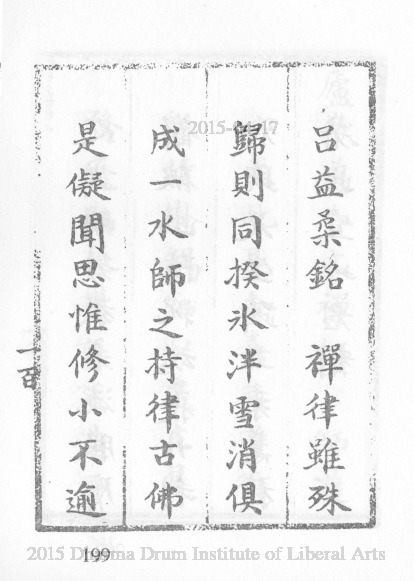 呂益柔銘　禪律雖殊
歸則同揆氷泮雪消俱
成一水師之持律古佛
是儗聞思惟修小不逾
一百
199
2015-04-17
2015 Dharma Drum Institute of Liberal Arts